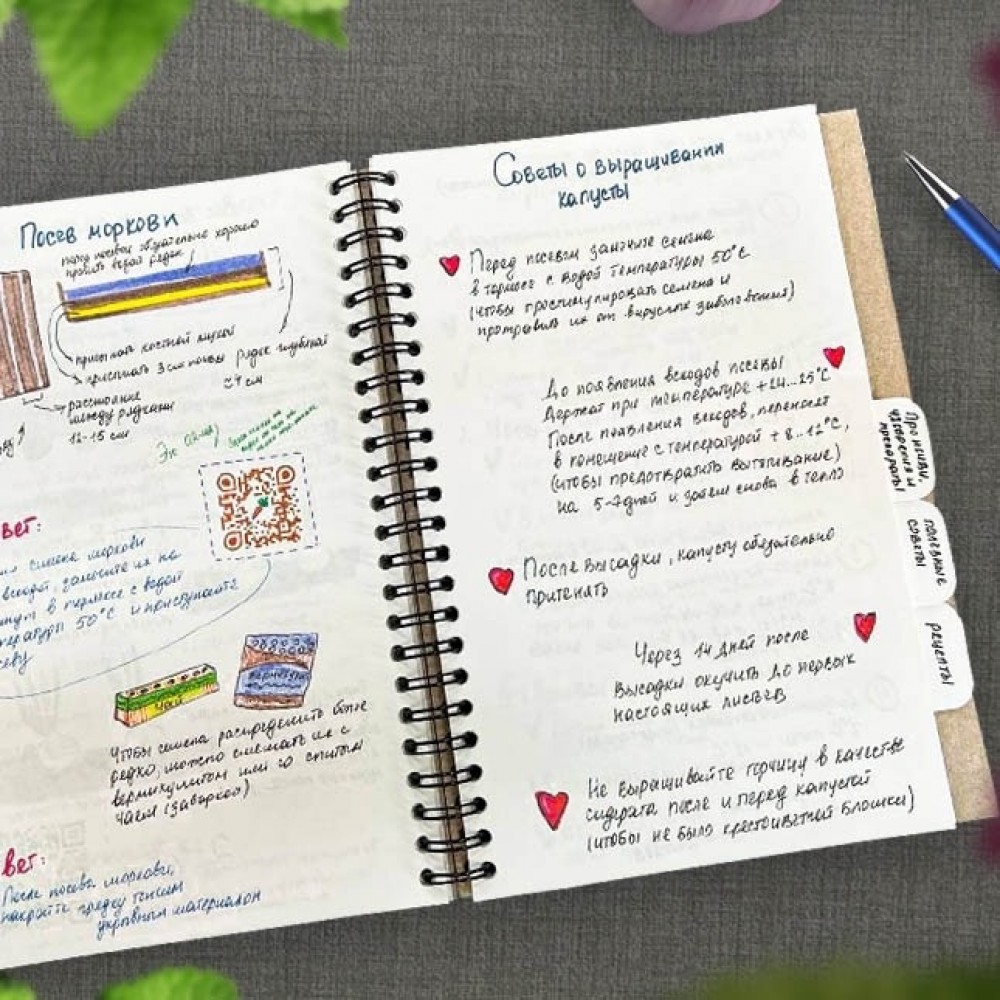 Посев моркови
перед посевом обязательно хорошо
пролить водой рядок
присыпать костной мукой
присыпать 3 см почвы
рядок глубиной
≈4 см
расстояние
между рядками
12-15 см
вет:
семена моркови
замочите их на
в термосе с водой
температуры 50°С и приступайте
севу
Чай
вермикулит
Чтобы семена распределить более
редко, можно смешать их с
вермикулитом или со спитым
чаем (заваркой)
вет:
После посева моркови,
накройте грядку тонким
укрывным материалом
Советы о выращивании
капусты
Перед посевом замочите семена
в термосе с водой температуры 50°С
(чтобы простимулировать семена и
протравить их от вирусных заболевания)
До появления всходов посевы
держат при температуре +24...25°С
После появления всходов, переносят
в помещение с температурой +8...12°С,
(чтобы предотвратить вытягивание)
на 5-7 дней и затем снова в тепло
После высадки, капусту обязательно
притенять
Через 14 дней после
высадки окучить до первых
настоящих листьев
Не выращивайте горчицу в качестве
сидерата после и перед капустой
(чтобы не было крестоцветной блошки)
Про почву,
удобрения и
препараты
полезные
советы
рецепты